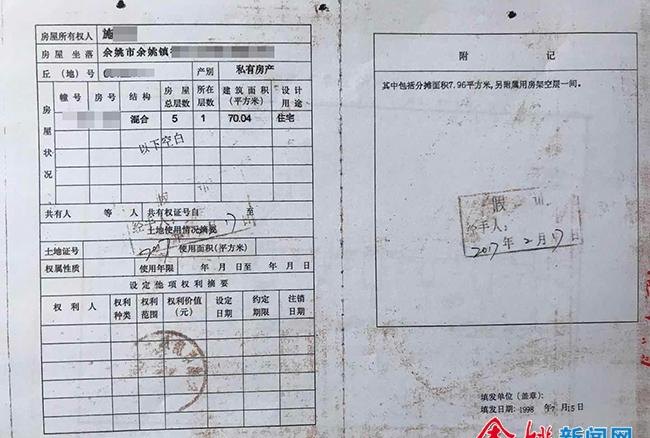 房屋所有权人 施
房屋坐落 余姚市余姚镇
丘（地）号 产别 私有房产
房屋状况
幢号 房号 结构 房屋总层数 所在层数 建筑面积（平方米） 设计用途
混合 5 1 70.04 住宅
以下空白
共有人 等 人 共有权证号自 至
土地使用情况摘要
土地证号 使用面积(平方米)
权属性质 使用年限 年 月 日至 年 月 日
设定他项权利摘要
权利人 权利种类 权利范围 权利价值（元） 设定日期 约定期限 注销日期
附记
其中包括分摊面积7.96平方米,另附属用房架空层一间。
假
经手人：
2017年2月17日
填发单位（盖章）：
填发日期：1998 年7 月15日
余姚新闻网